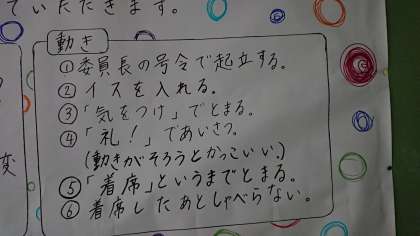 ていただきます。
動き
①委員長の号令で起立する。
②イスを入れる。
③「気をつけ」でとまる。
④「礼!」であいさつ。
(動きがそろうとかっこいい。)
変
⑤「着席」というまでとまる。
⑥着席したあとしゃべらない。